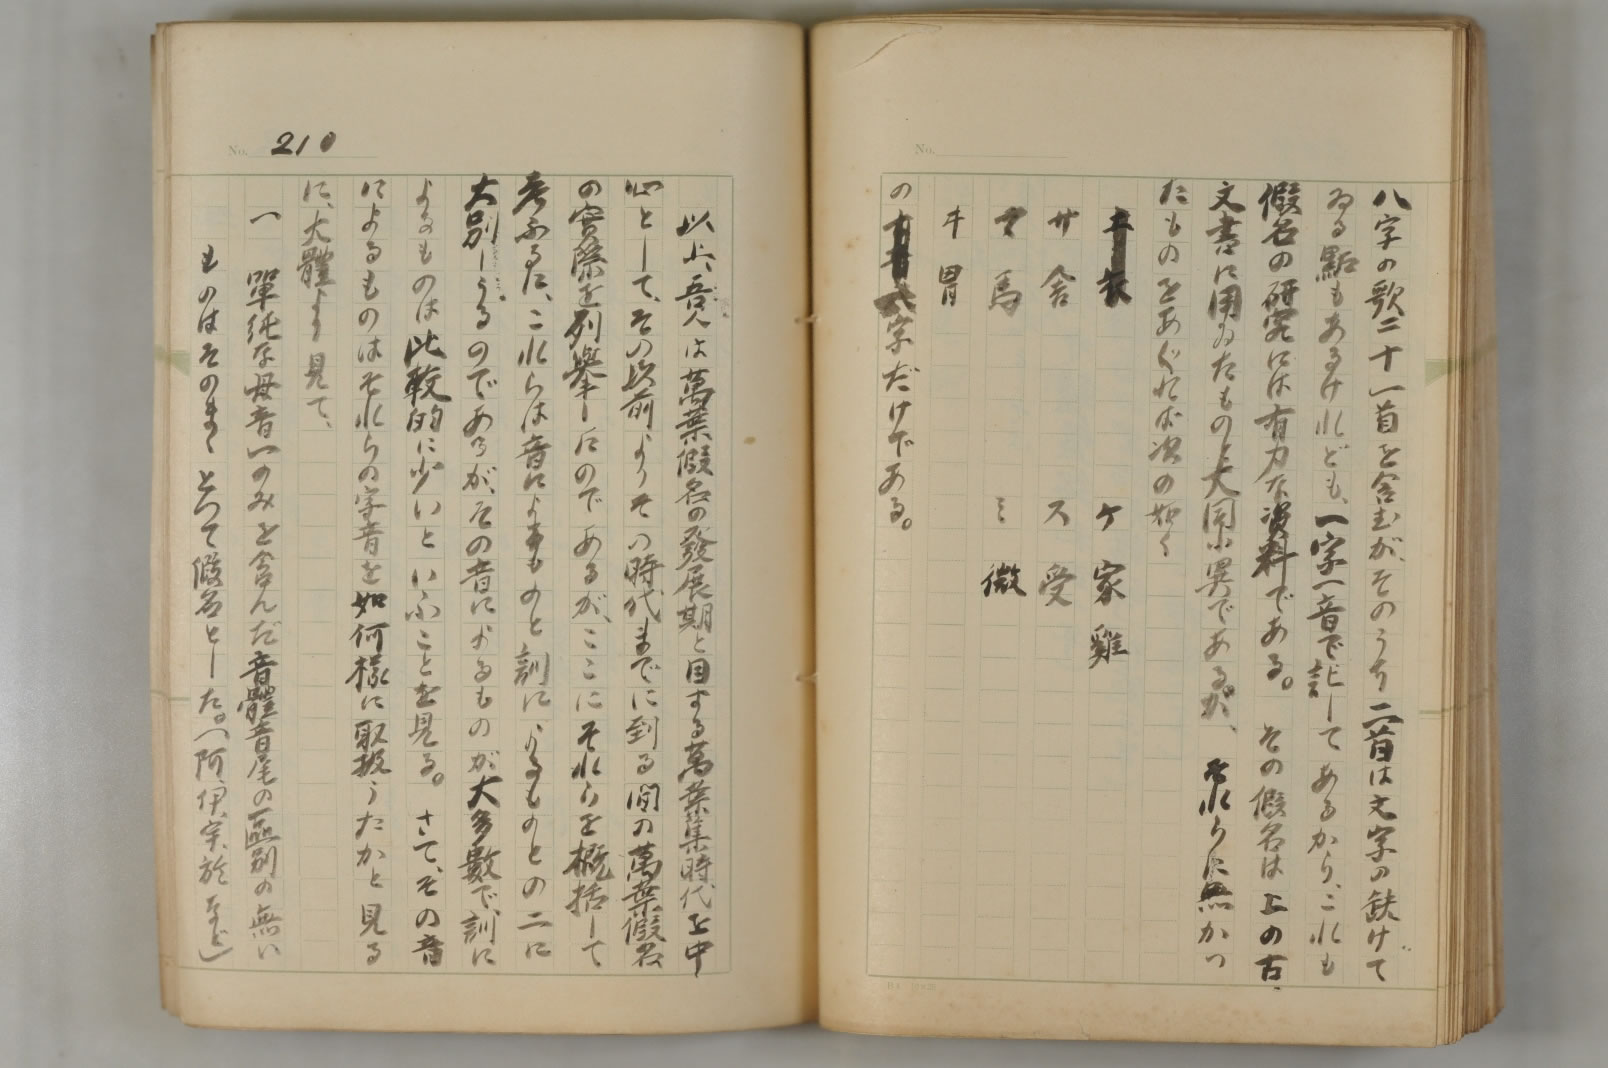 八字の歌二十一首を含むが、そのうち二首は文字の缺けて
ゐる點もあるけれども、一字一音で記してあるから、これも
假名の研究には有力な資料である。その假名は上の古
文書に用ゐたものと大同小異であるが、それらに無かつ
たものをあぐれば次の如く
ケ 家 雞
サ 舍 ス 受
マ 馬 ミ 微
ヰ 胃
の 字だけである。
No.
No. 210
以上、吾人は萬葉假名の發展期と目する萬葉集時代を中
心として、その以前よりその時代までに到る間の萬葉假名
の實際を列擧したのであるが、ここにそれらを概括して
考ふるに、これらは音によるものと訓によるものとの二に
大別しうるのであるが、その音によるものが大多數で、訓に
よるものは比較的に少いといふことを見る。さて、その音
によるものはそれらの字音を如何樣に取扱うたかと見る
に、大體より見て、
一 單純な母音一のみを含んだ音體音尾の區別の無い
ものはそのまゝとつて假名とした。(阿、伊、宇、於など)